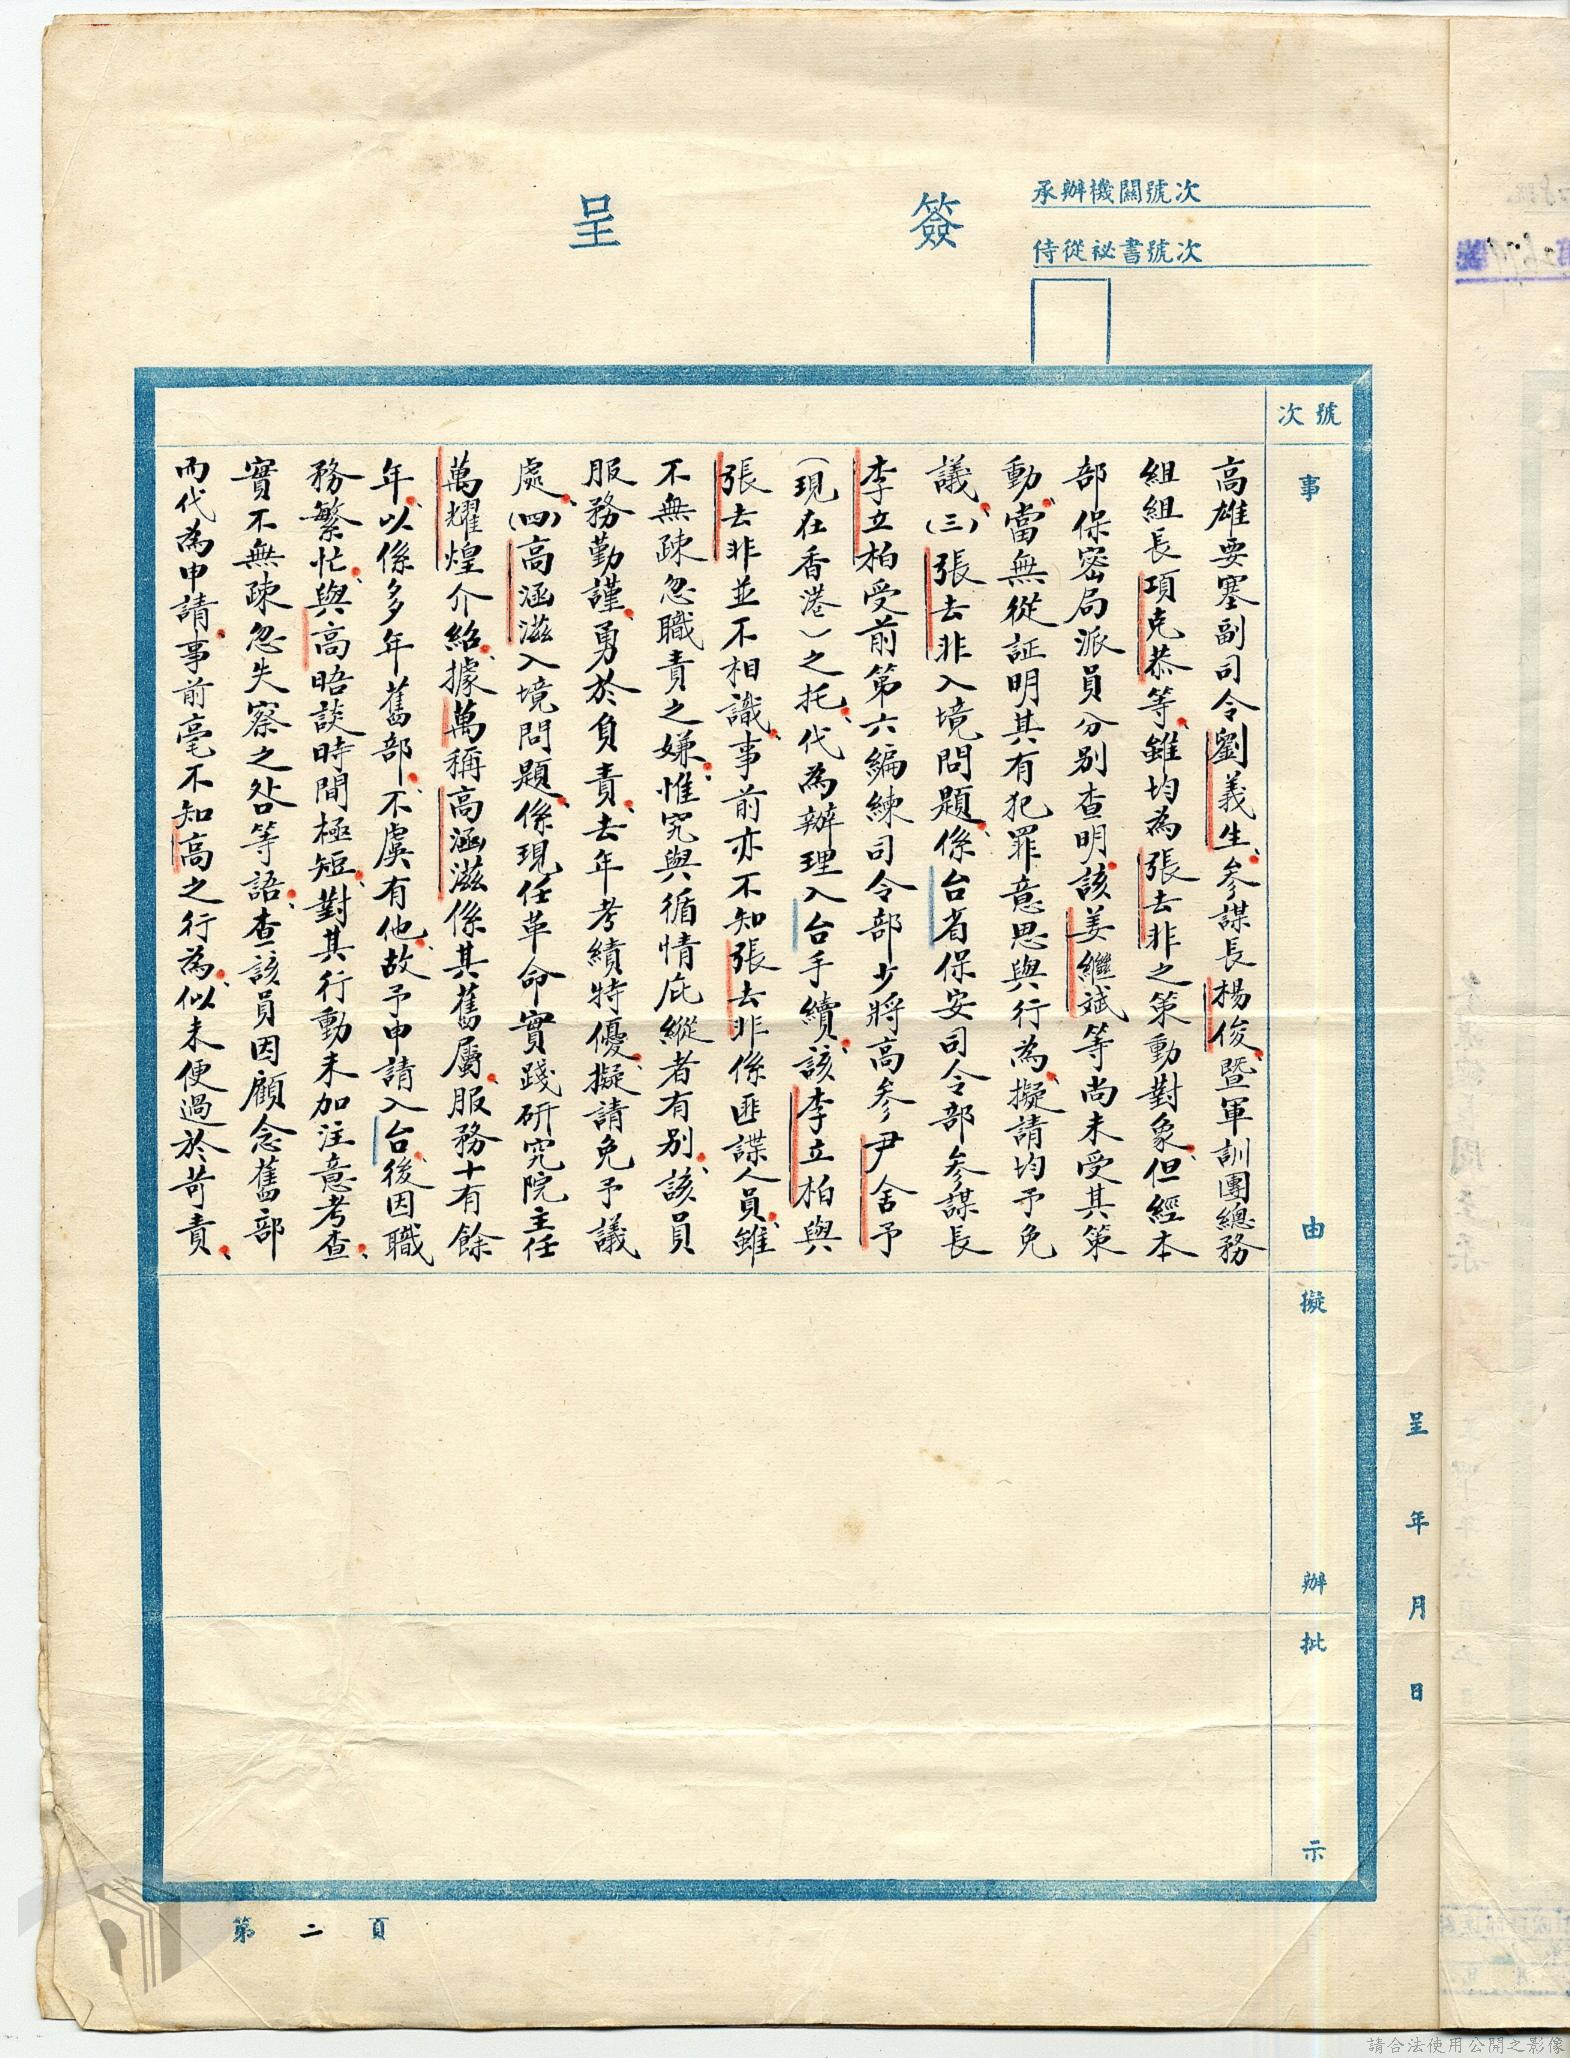 承辦機關號次
侍從祕書號次
簽呈
號次
事由
擬辦
批示
高雄要塞副司令劉義生、參謀長楊俊、暨軍訓團總務
組組長項克恭等、雖均為張去非之策動對象、但經本
部保密局派員分別查明、該姜繼斌等尚未受其策
動、當無從証明其有犯罪意思與行為、擬請均予免
議、(三)張去非入境問題、係台省保安司令部參謀長
李立柏受前第六編練司令部少將高參尹舍予
(現在香港)之托、代為辦理入台手續、該李立柏與
張去非並不相識、事前亦不知張去非係匪諜人員、雖
不無疎忽職責之嫌、惟究與循情庇縱者有別、該員
服務勤謹、勇於負責、去年考績特優、擬請免予議
處、(四)高涵滋入境問題、係現任革命實踐研究院主任
萬耀煌介紹、據萬稱高涵滋係其舊屬、服務十有餘
年、以係多年舊部、不虞有他、故予申請入台、後因職
務繁忙、與高晤談時間極短、對其行動未加注意考查、
實不無疎忽失察之咎等語、查該員因顧念舊部
而代為申請、事前毫不知高之行為、似未便過於苛責、
呈 年 月 日
第二頁
請合法使用公開之影像